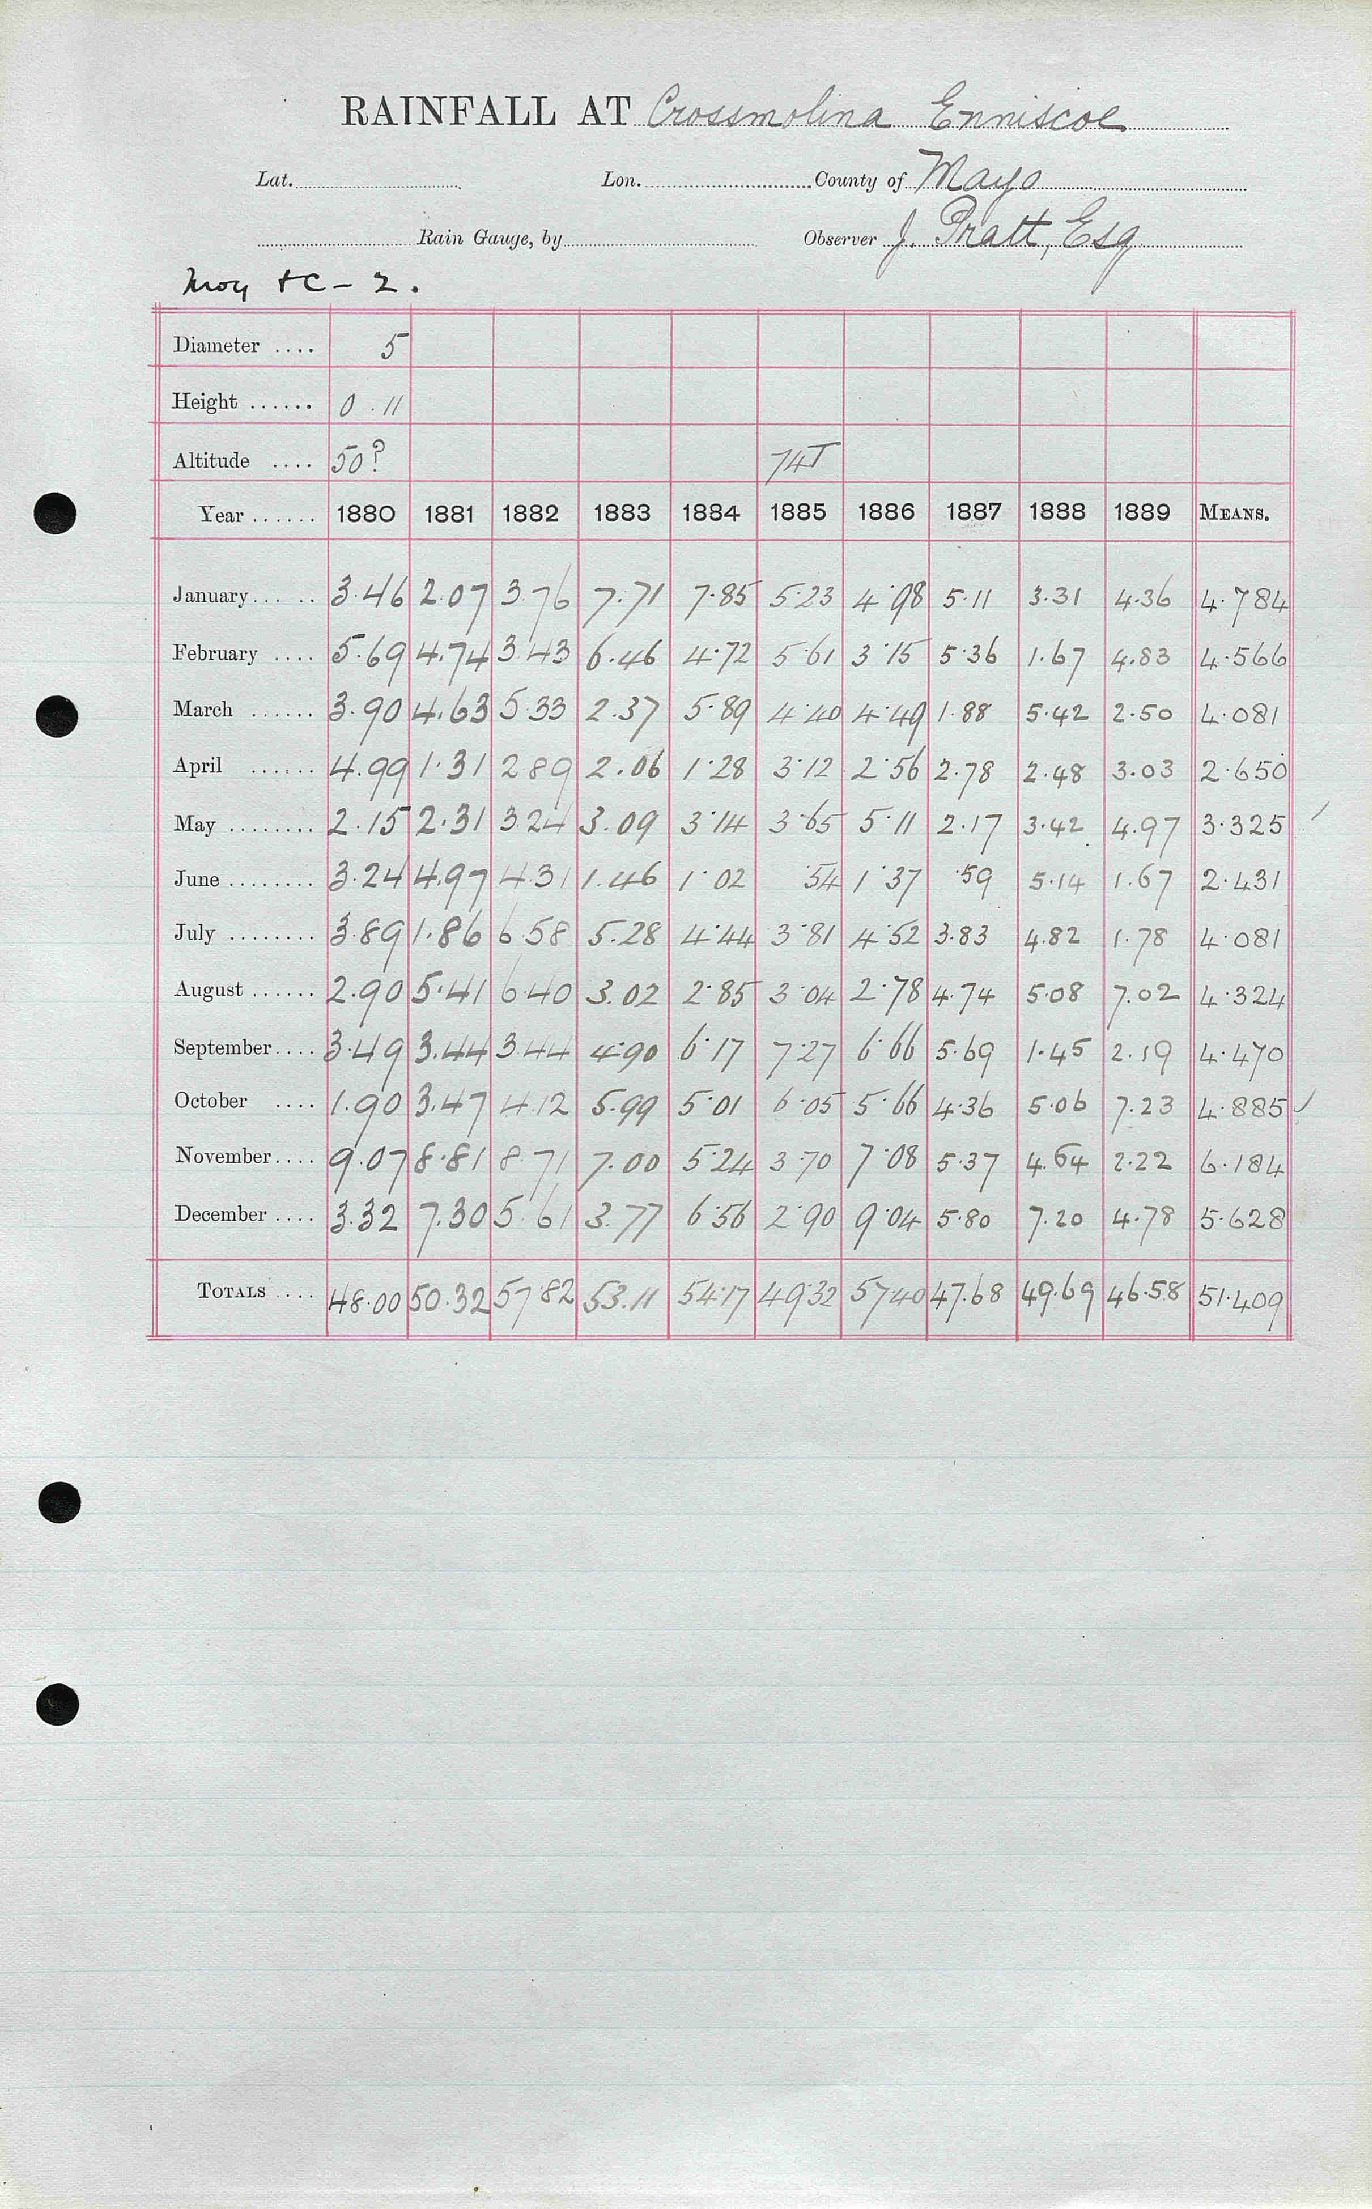 RAINFALL AT Crossmolina Enniscoe
Lat. Lon. County of Mayo
Rain Gauge, by Observer J. Pratt, Esq
Moy &C - 2.
Diameter .... 5
Height ...... 0 . 11
Altitude .... 50? 74T
Year ...... 1880 1881 1882 1883 1884 1885 1886 1887 1888 1889 MEANS.
January ...... 3.46 2.07 3.76 7.71 7.85 5.23 4.98 5.11 3.31 4.36 4.784
February .... 5.69 4.74 3.43 6.46 4.72 5.61 3.15 5.36 1.67 4.83 4.566
March ...... 3.90 4.63 5.33 2.37 5.89 4.40 4.49 1.88 5.42 2.50 4.081
April ...... 4.99 1.31 2.89 2.06 1.28 3.12 2.56 2.78 2.48 3.03 2.650
May ........ 2.15 2.31 3.24 3.09 3.14 3.65 5.11 2.17 3.42 4.97 3.325
June ........ 3.24 4.97 4.31 1.46 1.02 .54 1.37 .59 5.14 1.67 2.431
July ........ 3.89 1.86 6.58 5.28 4.44 3.81 4.52 3.83 4.82 1.78 4.081
August ...... 2.90 5.41 6.40 3.02 2.85 3.04 2.78 4.74 5.08 7.02 4.324
September .... 3.49 3.44 3.44 4.90 6.17 7.27 6.66 5.69 1.45 2.19 4.470
October .... 1.90 3.47 4.12 5.99 5.01 6.05 5.66 4.36 5.06 7.23 4.885 ✓
November .... 9.07 8.81 8.71 7.00 5.24 3.70 7.08 5.37 4.64 2.22 6.184
December .... 3.32 7.30 5.61 3.77 6.56 2.90 9.04 5.80 7.20 4.78 5.628
TOTALS .... 48.00 50.32 57.82 53.11 54.17 49.32 57.40 47.68 49.69 46.58 51.409